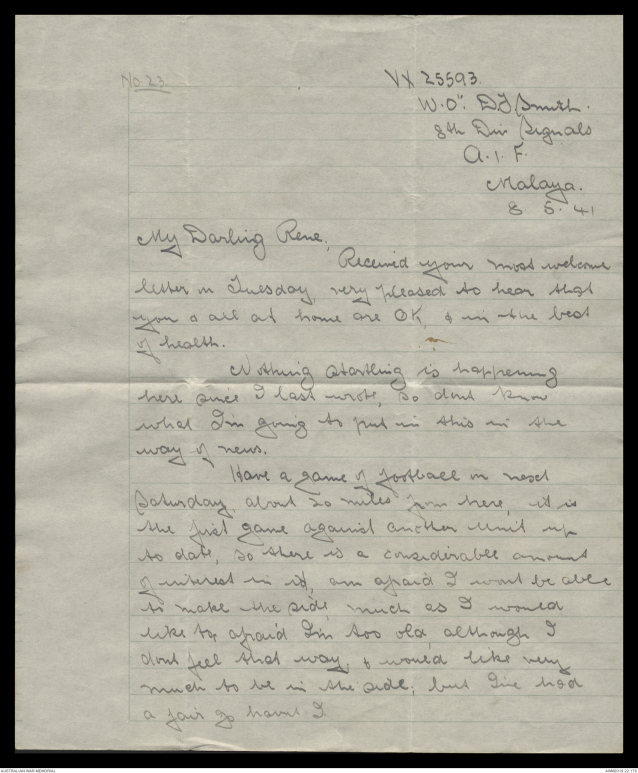 No. 23
VX 25593.
W.O". D J Smith.
8th Div Signals
A.I.F.
Malaya.
8 5. 41
My Darling Rene,
Received your most welcome
letter on Tuesday, very pleased to hear that
you & all at home are OK, & in the best
of health.
Nothing startling is happening
here since I last wrote, so dont know
what I'm going to put in this in the
way of news.
Have a game of football on next
Saturday, about 20 miles from here, it is
the first game against another unit up
to date, so there is a considerable amount
of interest in it, am afraid I wont be able
to make the side, much as I would
like to, afraid I'm too old, although I
dont feel that way, & would like very
much to be in the side, but I've had
a fair go havnt I
AUSTRALIAN WAR MEMORIAL